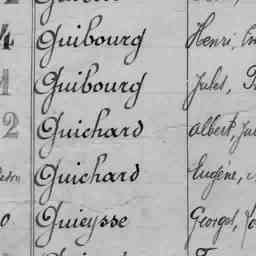 4 Guibourg Henri,
1 Guibourg Jules,
2 Guichard Albert, Jul
Guichard Eugène,
0 Guieysse Georges,